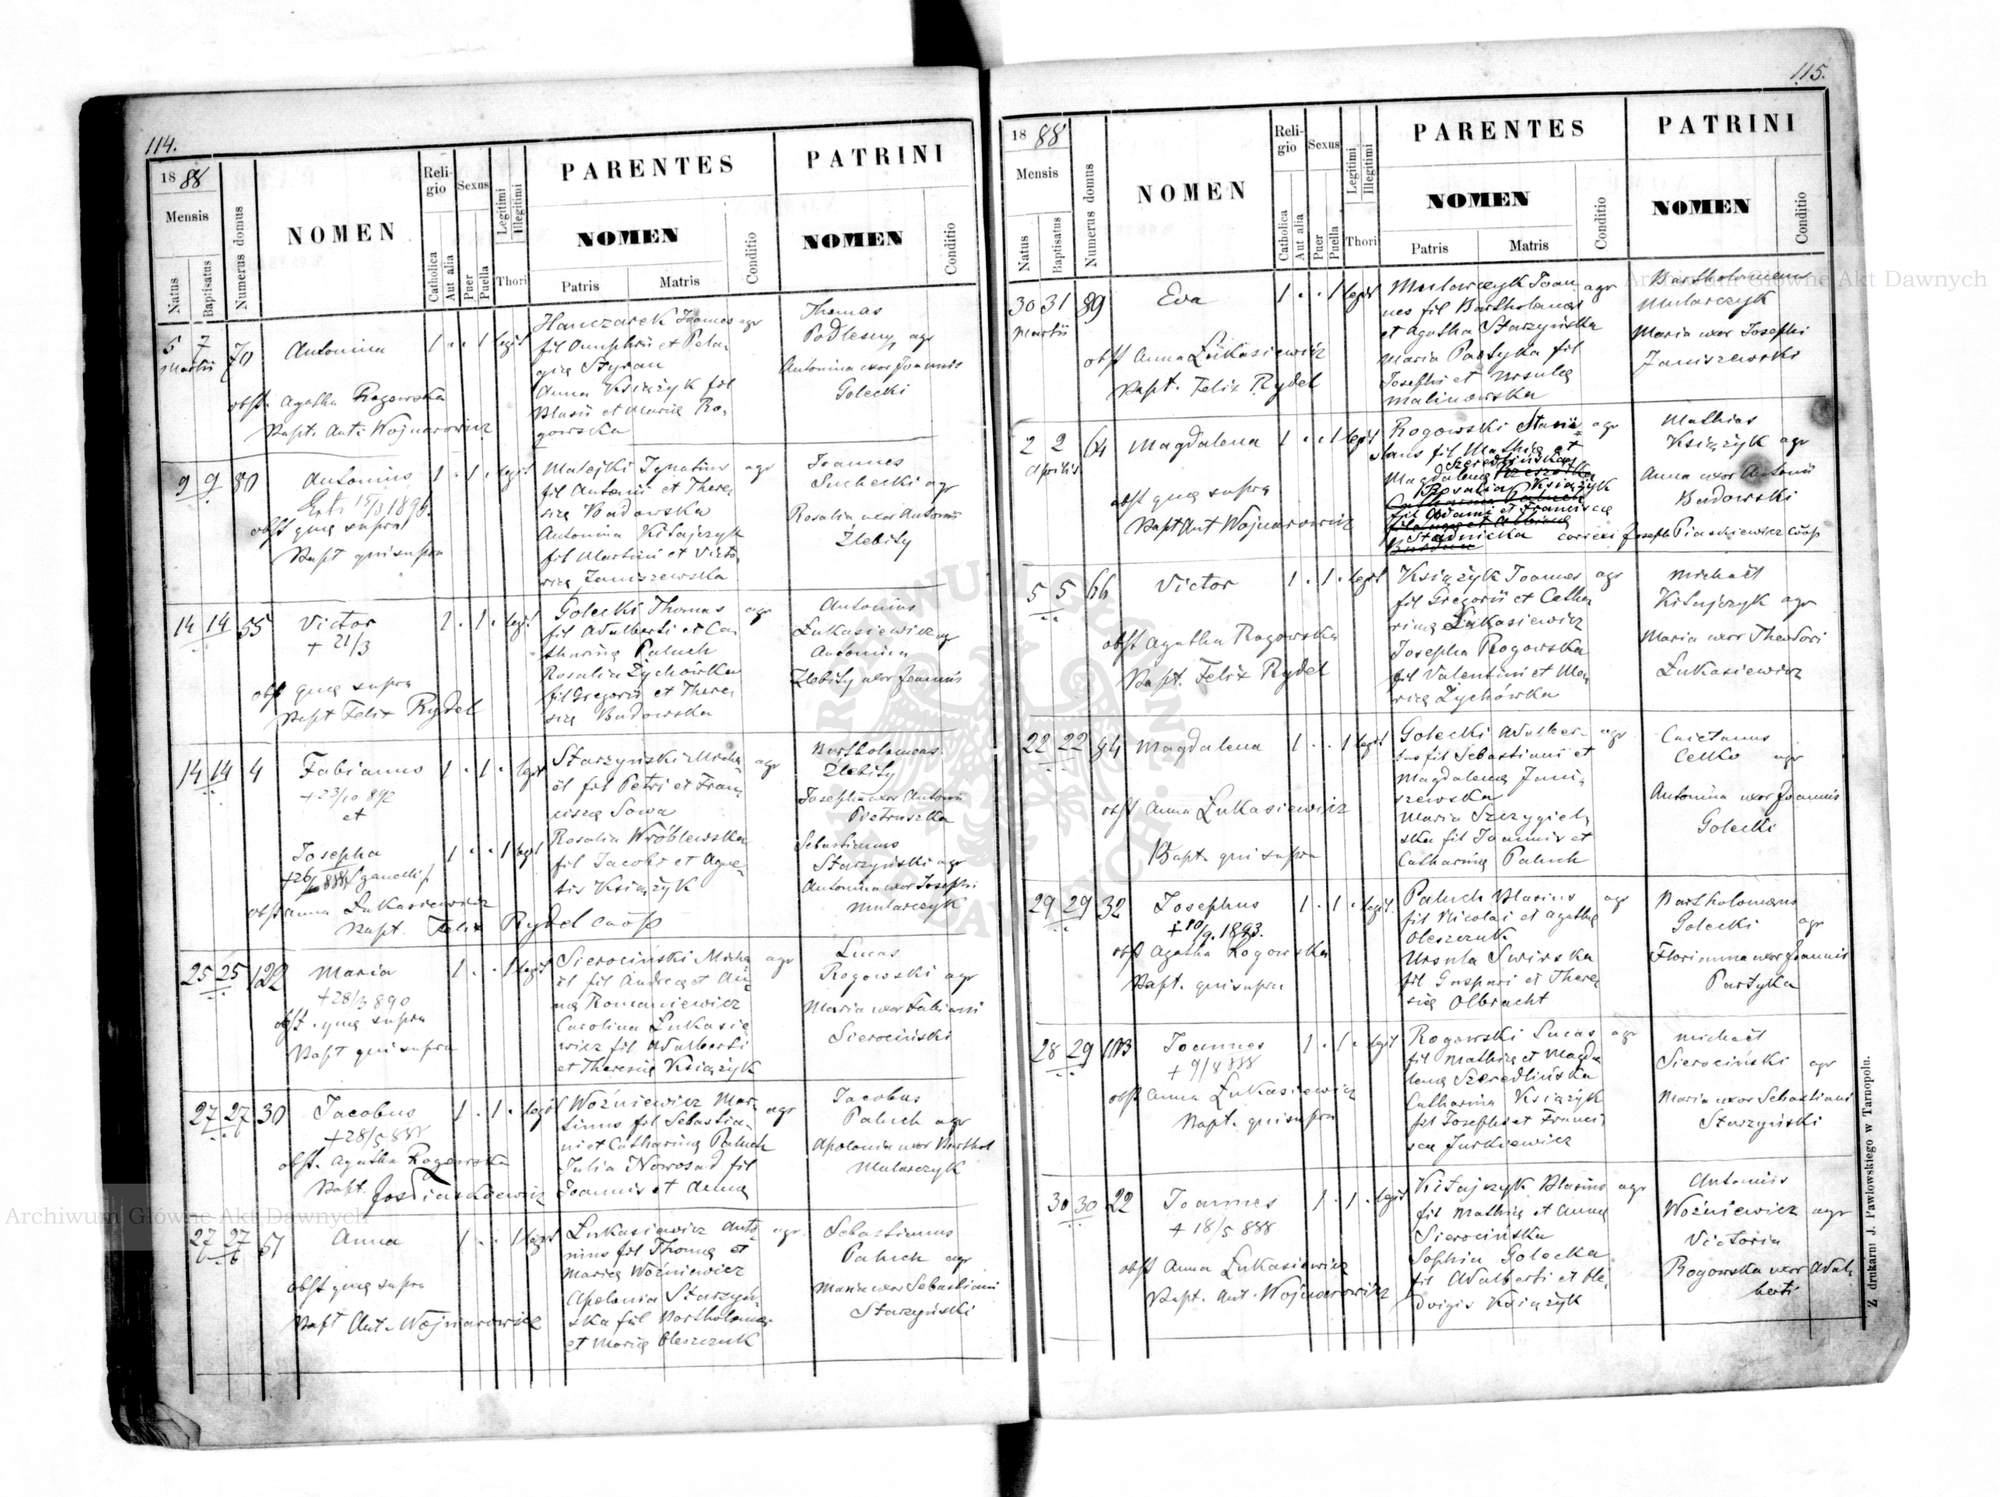 114.
18 88
Mensis
Natus
Baptisatus
Numerus domus
NOMEN
Religio
Catholica
Aut alia
Sexus
Puer
Puella
Legitimi
Illegitimi
Thori
PARENTES
NOMEN
Patris
Matris
Conditio
PATRINI
NOMEN
Conditio
5 7 70 Antonina 1 . . 1 legit
Martii
obst. Agatha Rogowska
Bapt. Ant. Wojnarowicz
Hanczarek Joannes agr
fil Onuphrii et Pela-
gia Styran
Anna Książyk fil
Blasii et Maria Ro-
gowska
Thomas
Podlesny agr
Antonina uxor Joannis
Golecki
9 9 80 Antonius 1 . 1 . legit
obst quae supra
Bapt qui supra
Matejki Ignatius agr
fil Antonii et There-
sia Budowska
Antonina Kitajczyk
fil Martini et Victo-
ria Janiszewska
Joannes
Suchecki agr
Rosalia uxor Antonii
Zlebity
14 14 55 Victor 1 . 1 . legit
+ 21/3
obst quae supra
Bapt Felix Rydel
Golecki Thomas agr
fil Adalberti et Ca-
tharina Paluch
Rosalia Żychówka
fil Gregorii et There-
sia Budowska
Antonius
Łukasiewicz agr
Antonina
Zlebity uxor Joannis
14 14 4 Fabianus 1 . 1 . legit
+ 23/10 892
et
Josepha 1 . . 1 legit
obst Anna Łukasiewicz
Bapt. Felix Rydel coop
Starzyński Micha-
ël fil Petri et Fran-
cisca Sowa
agr
Rosalia Wróblewska
fil Jacobi et Agne-
tis Książyk
Bartholomaeus
Zlebity
Josepha uxor Antonii
Pietruszka
Sebastianus
Starzyński agr
Antonina uxor Josephi
Mularczyk
25 25 122 Maria 1 . . 1 legit
+ 28/3 890
obst. quae supra
Bapt qui supra
Sierociński Micha- agr
ël fil Andrea et An-
na Romaniewicz
Carolina Łukasie-
wicz fil Adalberti
et Theresia Książyk
Lucas
Rogowski agr
Maria uxor Fabiani
Sierociński
27 27 30 Jacobus 1 . 1 . legit
+ 28/5 888
obst. Agatha Rogowska
Bapt. Jos Piaskiewicz
Woźniewicz Mar- agr
tinus fil Sebastia-
ni et Catharina Paluch
Julia Nowosad fil
Joannis et Anna
Jacobus
Paluch agr
Apolonia uxor Barthol
Mularczyk
27 27 61 Anna 1 . . 1 legit
obst quae supra
Bapt Ant. Wojnarowicz
Łukasiewicz Anto- agr
nius fil Thoma et
Maria Woźniewicz
Apolonia Starzyń-
ska fil Bartholomaei
et Maria Oleszczuk
Sebastianus
Paluch agr
Maria uxor Sebastiani
Starzyński
115.
18 88
Mensis
Natus
Baptisatus
Numerus domus
NOMEN
Religio
Catholica
Aut alia
Sexus
Puer
Puella
Legitimi
Illegitimi
Thori
PARENTES
NOMEN
Patris
Matris
Conditio
PATRINI
NOMEN
Conditio
30 31 89 Eva 1 . . 1 legit
Martii
obst Anna Łukasiewicz
Bapt. Felix Rydel
Mularczyk Joan- agr
nes fil Bartholomaei
et Agatha Starzyńska
Maria Partyka fil
Josephi et Ursula
Malinowska
Bartholomaeus
Mularczyk
Maria uxor Josephi
Janiszewski
2 2 64 Magdalena 1 . . 1 legit
Aprilis
obst quae supra
Bapt Ant Wojnarowicz
Rogowski Stanis- agr
laus fil Mathia et
Szeredlińska
Magdalena
Rosalia Książyk
fil Adami et Francisca
Stadnicka
Mathias
Książyk agr
Anna uxor Antonii
Budowski
Joseph Piaskiewicz coop
5 5 66 Victor 1 . 1 . legit
obst Agatha Rogowska
Bapt. Felix Rydel
Książyk Joannes agr
fil Gregorii et Catha-
rina Łukasiewicz
Josepha Rogowska
fil Valentini et Ma-
ria Żychówka
Michaël
Kitajczyk agr
Maria uxor Theodori
Łukasiewicz
22 22 84 Magdalena 1 . . 1 legit
obst Anna Łukasiewicz
Bapt. qui supra
Golecki Adalber- agr
tus fil Sebastiani et
Magdalena Jani-
szewska
Maria Szczygiel-
ska fil Joannis et
Catharina Paluch
Caietanus
Cełko agr
Antonina uxor Joannis
Golecki
29 29 32 Josephus 1 . 1 . legit.
+ 10/9. 1893.
obst Agatha Rogowska
Bapt. qui supra
Paluch Blasius agr
fil Nicolai et Agatha
Oleszczuk
Ursula Swirska
fil Gaspari et There-
sia Olbracht
Bartholomaeus
Golecki agr
Florianna uxor Joannis
Partyka
28 29 103 Joannes 1 . 1 . legit
+ 9/8 888
obst Anna Łukasiewicz
Bapt. qui supra
Rogowski Lucas agr
fil Mathia et Magda-
lena Szeredlińska
Catharina Książyk
fil Josephi et Franci-
sca Jurkiewicz
Michaël
Sierociński agr
Maria uxor Sebastiani
Starzyński
30 30 22 Joannes 1 . 1 . legit
+ 18/5 888
obst Anna Łukasiewicz
Bapt. Ant. Wojnarowicz
Kitajczyk Blasius agr
fil Mathia et Anna
Sierocińska
Sophia Golecka
fil Adalberti et He-
dvigis Książyk
Antonius
Woźniewicz agr
Victoria
Rogowska uxor Adal-
berti
Z drukarni J. Pawłowskiego w Tarnopolu.
Archiwum Główne Akt Dawnych
Archiwum Główne Akt Dawnych
ARCHIWUM GŁÓWNE AKT DAWNYCH